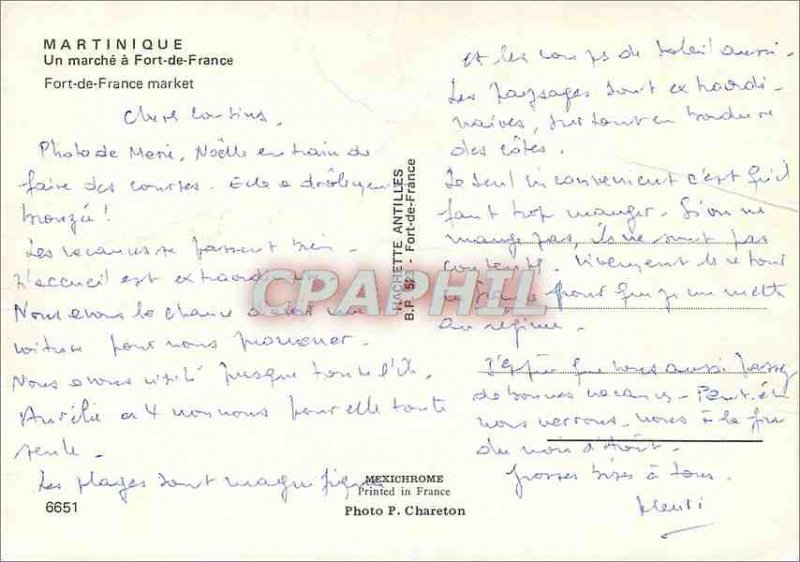 MARTINIQUE
Un marché à Fort-de-France
Fort-de-France market
Chers Cousins,
Photo de Marie, Noëlle en train de
faire des courses. Elle a drôlement
bronzé !
Les vacances se passent bien.
L'accueil est extraordin
Nous avons la chance d'avoir une
voiture pour nous promener.
Nous avons visité presque toute l'île.
Aurélie a 4 nounous pour elle toute
seule.
Les plages sont magnifiques
6651
et les coups de soleil aussi.
Les paysages sont extraordi-
naires, surtout en bordure
des côtes.
Le seul inconvénient c'est qu'il
faut trop manger. Si on ne
mange pas, ils ne sont pas
contents. Vivement le retour
en France pour que je me mette
au régime.
J'espère que vous aussi passez
de bonnes vacances. Peut-être
nous verrons-nous à la fin
du mois d'août.
Grosses bises à tous.
Henri
HACHETTE ANTILLES
B.P. 523 - Fort-de-France
CPAPHIL
MEXICHROME
Printed in France
Photo P. Chareton